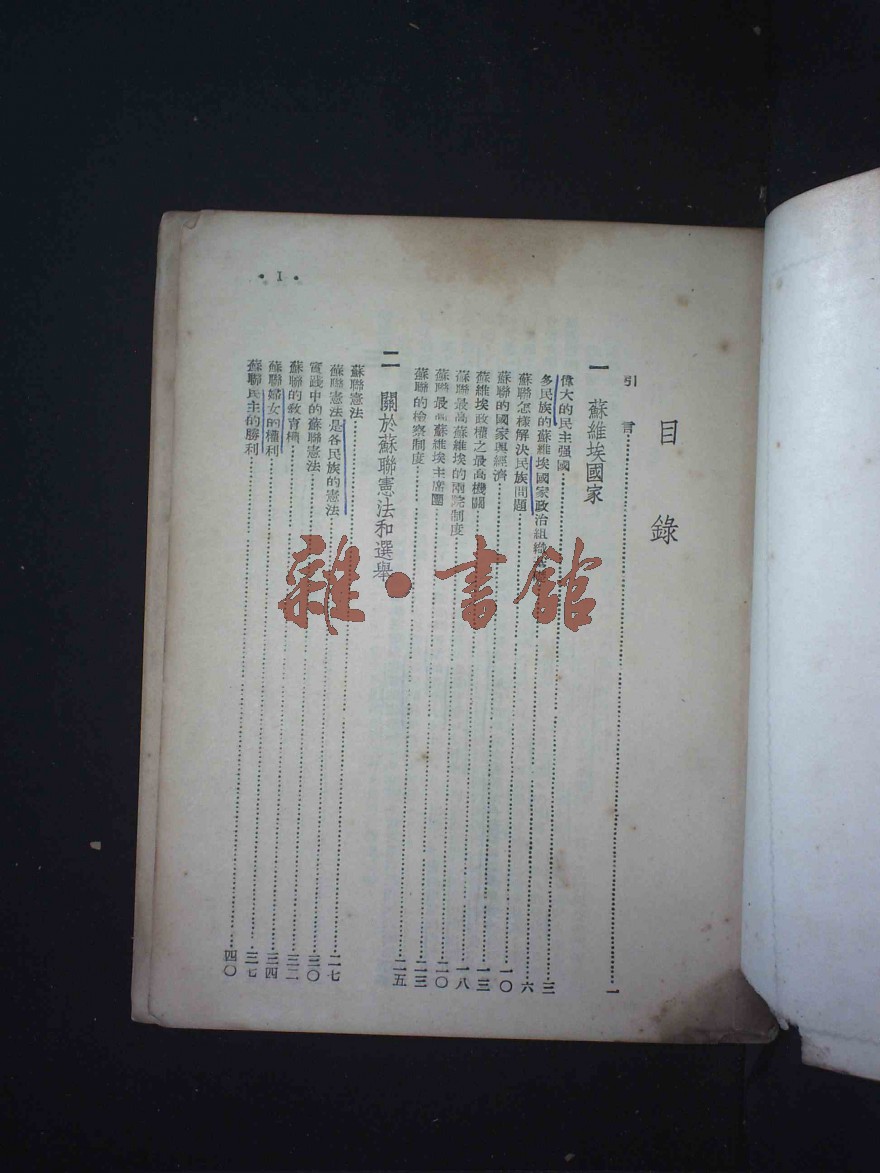 • I •
目錄
引言……一
一 蘇維埃國家
偉大的民主强國……三
多民族的蘇維埃國家政治組織……六
蘇聯怎樣解決民族問題……一〇
蘇聯的國家與經濟……一三
蘇維埃政權之最高機關……一八
蘇聯最高蘇維埃的兩院制度……二〇
蘇聯最高蘇維埃主席團……二三
蘇聯的檢察制度……二五
二 關於蘇聯憲法和選舉
蘇聯憲法……二七
蘇聯憲法是各民族的憲法……三〇
實踐中的蘇聯憲法……三二
蘇聯的教育權……三四
蘇聯婦女的權利……三七
蘇聯民主的勝利……四〇
雜·書館